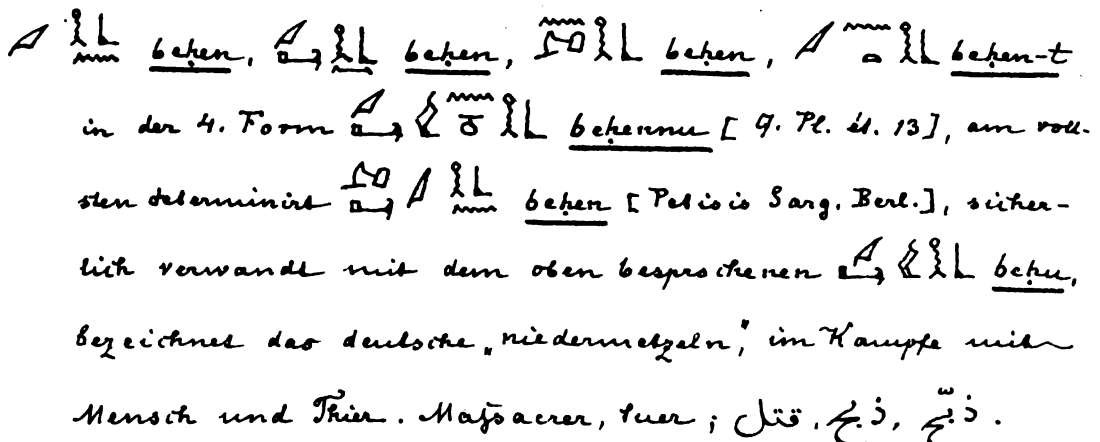 beḥen, beḥen, beḥen, beḥen-t
in der 4. Form beḥennu [ 9. Pl. ét. 13], am voll-
sten determinirt beḥen [Petisis Sarg. Berl.], sicher-
lich verwandt mit dem oben besprochenen beḥu,
bezeichnet das deutsche „niedermetzeln", im Kampfe mit
Mensch und Thier. Maſsacrer, tuer; قتل, ذبح, ذبّح.